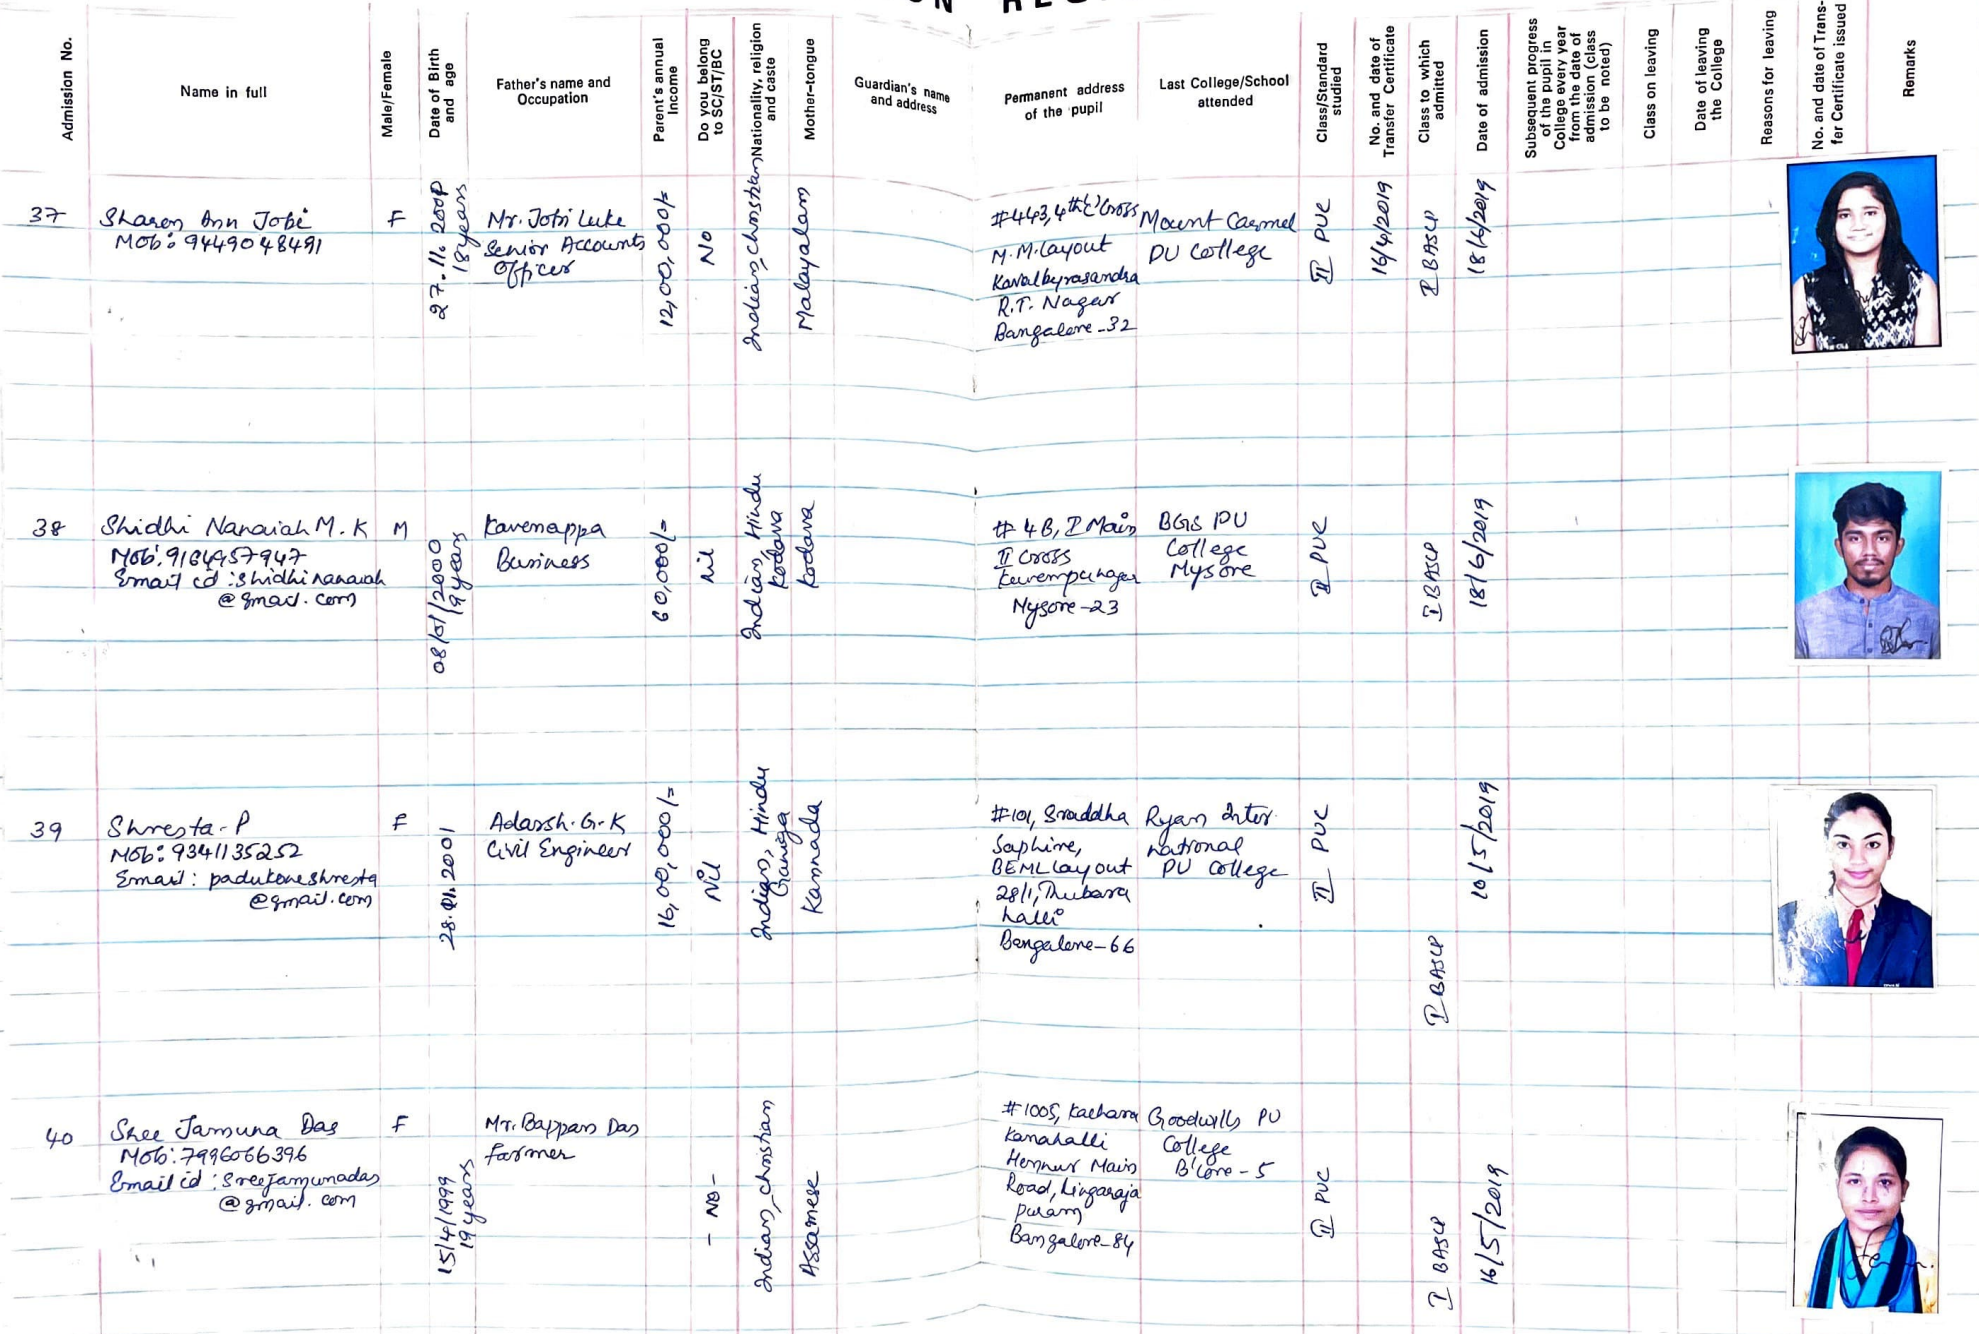 Admission No.
Name in full
Male/Female
Date of Birth
and age
Father's name and
Occupation
Parent's annual
Income
Do you belong
to SC/ST/BC
Nationality, religion
and caste
Mother-tongue
Guardian's name
and address
Permanent address
of the pupil
Last College/School
attended
Class/Standard
studied
No. and date of
Transfer Certificate
Class to which
admitted
Date of admission
Subsequent progress
of the pupil in
College every year
from the date of
admission (class
to be noted)
Class on leaving
Date of leaving
the College
Reasons for leaving
No. and date of Trans-
fer Certificate issued
Remarks
37
Sharon Ann Jobi
Mob: 9449048491
F
27.11.2000
18 years
Mr. Jobi Luke
Senior Accounts
Officer
12,00,000/=
No
Indian, Christian
Malayalam
#443, 4th 'C' Cross
M.M. Layout
Kavalbyrasandra
R.T. Nagar
Bangalore-32
Mount Carmel
PU College
II PUC
16/4/2019
I BASCP
18/6/2019
38
Shidhi Nanaiah M.K
Mob: 9164957947
Email id: shidhinanaiah
@gmail.com
M
08/01/2000
19 years
Kavenappa
Business
60,000/=
Nil
Indian, Hindu
Kodava
Kodava
# 4B, I Main
II Cross
Kuvempunagar
Mysore-23
BGS PU
College
Mysore
II PUC
I BASCP
18/6/2019
39
Shresta-P
Mob: 9341135252
Email: padukoneshresta
@gmail.com
F
28.01.2001
Adarsh.G.K
Civil Engineer
16,00,000/=
Nil
Indian, Hindu
Ganiga
Kannada
#101, Sraddha
Saphire,
BEML Layout
28/1, Thubara
halli
Bangalore-66
Ryan Inter
national
PU College
II PUC
I BASCP
10/5/2019
40
Sree Jamuna Das
Mob: 7996066396
Email id: Sreejamunadas
@gmail.com
F
15/4/1999
19 years
Mr. Bappan Das
farmer
- No -
Indian, Christian
Assamese
#1005, Kachara
Kanahalli
Hennur Main
Road, Lingaraja
puram
Bangalore-84
Goodwills PU
College
B'lore-5
II PUC
I BASCP
16/5/2019